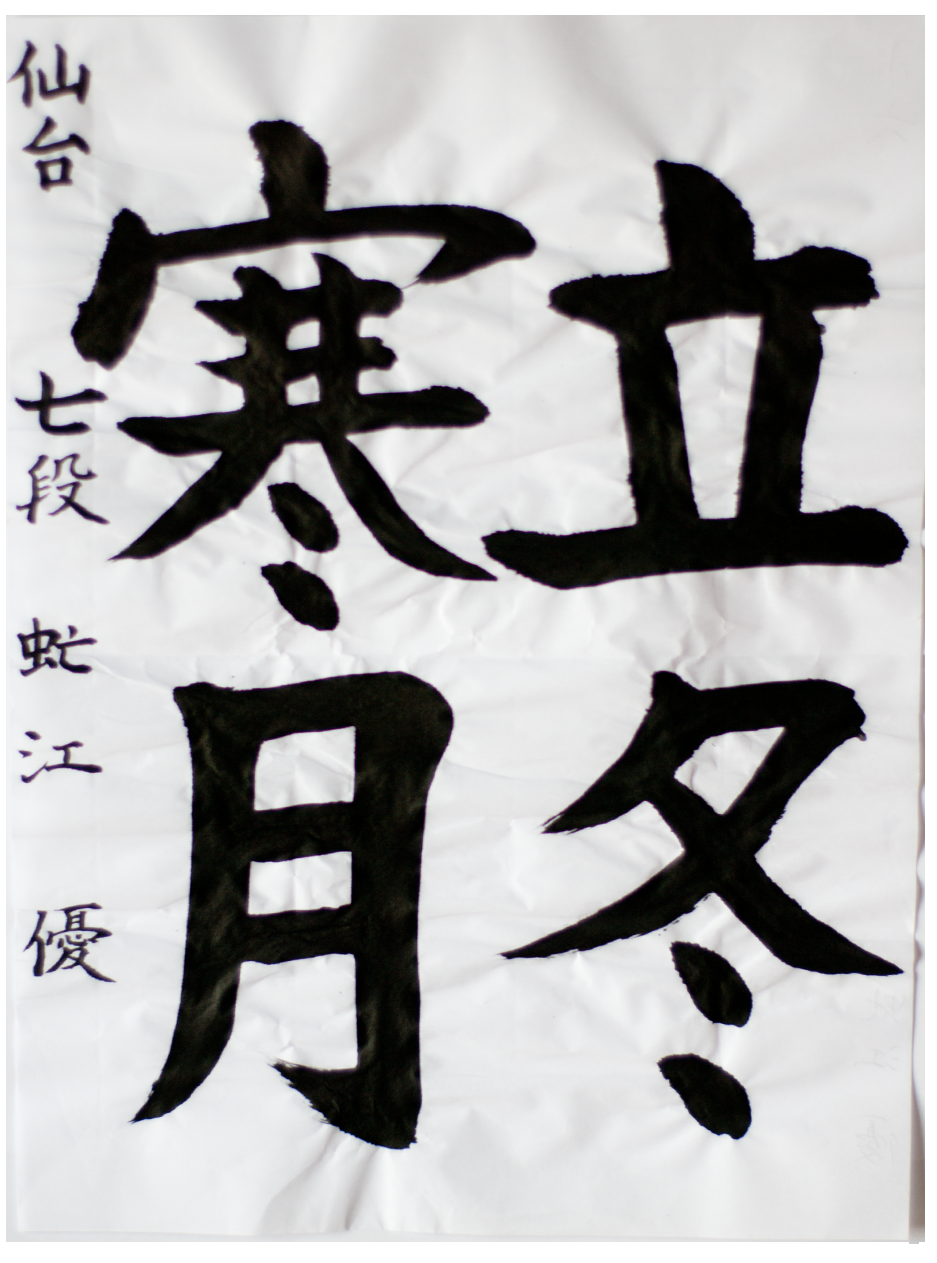 立冬
寒月
仙台 七段 虻江 優